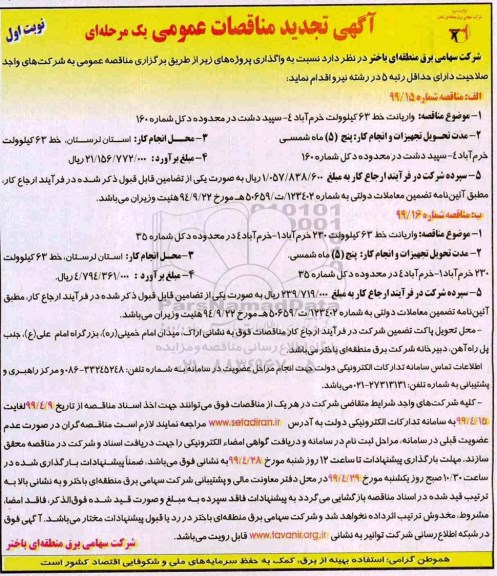 نوبت اول
آگهی تجدید مناقصات عمومی یک مرحله‌ای
شرکت سهامی برق منطقه‌ای باختر در نظر دارد نسبت به واگذاری پروژه‌های زیر از طریق برگزاری مناقصه عمومی به شرکت‌های واجد
صلاحیت دارای حداقل رتبه ۵ در رشته نیرو اقدام نماید:
الف: مناقصه شماره ۹۹/۱۵
۱- موضوع مناقصه: واریانت خط ۶۳ کیلوولت خرم‌آباد ٤- سپید دشت در محدوده دکل شماره ۱۶۰
۲- مدت تحویل تجهیزات و انجام کار: پنج (۵) ماه شمسی ۳- محل انجام کار: استان لرستان، خط ۶۳ کیلوولت
خرم‌آباد٤- سپید دشت در محدوده دکل شماره ۱۶۰ ۴- مبلغ برآورد: ۲۱/۱۵۶/۷۷۲/۰۰۰ ریال
۵- سپرده شرکت در فرآیند ارجاع کار به مبلغ ۱/۰۵۷/۸۳۸/۶۰۰ ریال به صورت یکی از تضامین قابل قبول ذکر شده در فرآیند ارجاع کار،
مطبق آئین‌نامه تضمین معاملات دولتی به شماره ۱۲۳۴۰۲/ت/۵۰۶۵۹ هـ مورخ ۹۴/۹/۲۲ هئیت وزیران می‌باشد.
ب: مناقصه شماره ۹۹/۱۶
۱- موضوع مناقصه: واریانت خط ۶۳ کیلوولت ۲۳۰ خرم‌آباد۱-خرم‌آباد٤ در محدوده دکل شماره ۳۵
۲- مدت تحویل تجهیزات و انجام کار: پنج (۵) ماه شمسی ۳- محل انجام کار: استان لرستان، خط ۶۳ کیلوولت
۲۳۰ خرم‌آباد۱-خرم‌آباد٤ در محدوده دکل شماره ۳۵ ۴- مبلغ برآورد: ۴/۷۹۴/۳۶۱/۰۰۰ ریال.
۵- سپرده شرکت در فرآیند ارجاع کار به مبلغ ۲۳۹/۷۱۹/۰۰۰ ریال به صورت یکی از تضامین قابل قبول ذکر شده در فرآیند ارجاع کار، مطبق
آئین‌نامه تضمین معاملات دولتی به شماره ۱۲۳۴۰۲/ت/۵۰۶۵۹ هـ مورخ ۹۴/۹/۲۲ هئیت وزیران می‌باشد.
- محل تحویل پاکت تضمین شرکت در فرآیند ارجاع کار مناقصات فوق به نشانی اراک، میدان امام خمینی (ره)، بزرگراه امام علی(ع)، جنب
پل راه‌آهن، دبیرخانه شرکت برق منطقه‌ای باختر می‌باشد.
اطلاعات تماس سامانه تدارکات الکترونیکی دولت جهت انجام مراحل عضویت در سامانه به شماره تلفن: ۳۳۲۴۵۲۴۸-۰۸۶ و مرکز راهبری و
پشتیبانی به شماره تلفن: ۲۷۳۱۳۱۳۱-۰۲۱ می‌باشد.
- کلیه شرکت‌های واجد شرایط متقاضی شرکت در هر یک از مناقصات فوق می‌توانند جهت اخذ اسناد مناقصه از تاریخ ۹۹/۴/۹ لغایت
۹۹/۴/۱۵ به سامانه تدارکات الکترونیکی دولت به آدرس www.setadiran.ir مراجعه نمایند لازم است مناقصه‌گران در صورت عدم
عضویت قبلی در سامانه، مراحل ثبت نام در سامانه و دریافت گواهی امضاء الکترونیکی را جهت دریافت اسناد و شرکت در مناقصه محقق
سازند. مهلت بارگذاری پیشنهادات تا ساعت ۱۲ روز شنبه مورخ ۹۹/۴/۲۸ به نشانی فوق می‌باشد، ضمناً پیشنهادات بارگذاری شده در
ساعت ۱۰/۳۰ صبح روز یکشنبه مورخ ۹۹/۴/۲۹ در محل دفتر معاونت مالی و پشتیبانی شرکت سهامی برق منطقه‌ای باختر و به نشانی بالا به
ترتیب قید شده در اسناد مناقصه بازگشایی می‌گردد به پیشنهادات فاقد سپرده به مبلغ و صورت قید شده فوق‌الذکر، فاقد امضا،
مشروط، مخدوش ترتیب اثر داده نخواهد شد و شرکت سهامی برق منطقه‌ای باختر در رد یا قبول پیشنهادات مختار می‌باشد. آگهی فوق
در شبکه اطلاع رسانی شرکت توانیر به نشانی www.tavanir.org.ir قابل رویت می‌باشد.
شرکت سهامی برق منطقه‌ای باختر
هموطن گرامی: استفاده بهینه از برق، کمک به حفظ سرمایه‌های ملی و شکوفایی اقتصاد کشور است